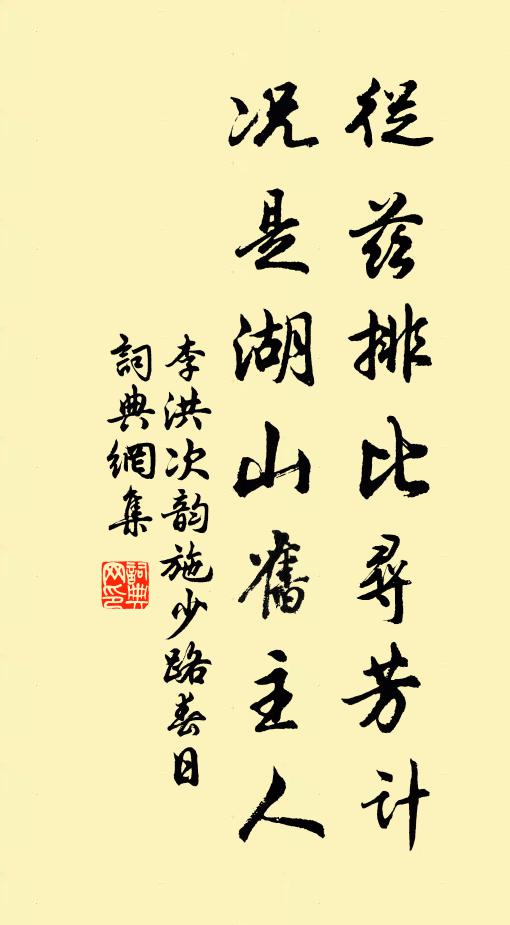 從茲排比尋芳計
况是湖山舊主人
李洪次韵施少路春日
詞典網集
詞典
网印